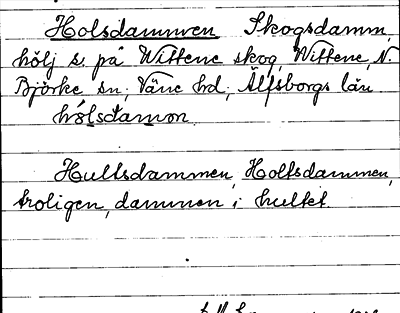 Holsdammen Skogsdamm,
hölj s. på Wittene skog, Wittene, N.
Björke sn; Väne hd; Älfsborgs län.
hólsdamon
Hultsdammen, Holtsdammen,
troligen, dammen i hultet.